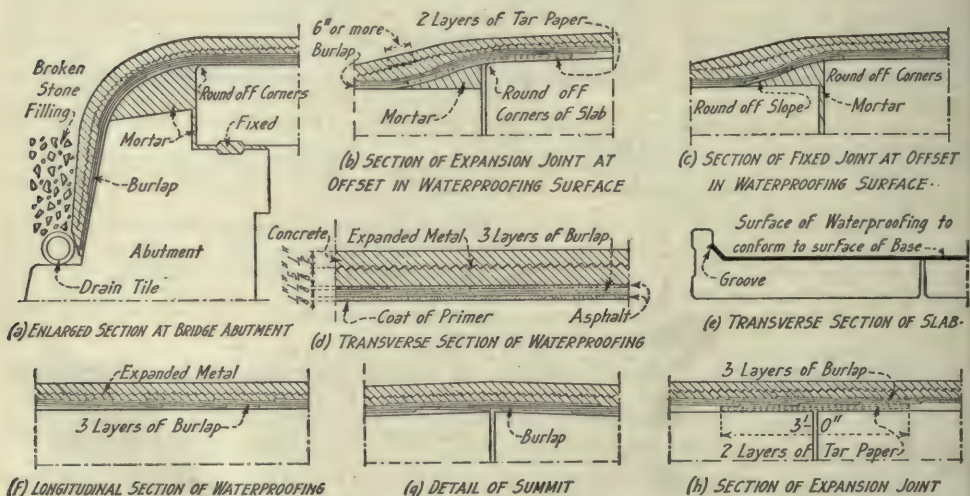 Broken
Stone
Filling
Round off Corners
Mortar
Fixed
Burlap
Abutment
Drain Tile
(a) ENLARGED SECTION AT BRIDGE ABUTMENT
2 Layers of Tar Paper
6" or more
Burlap
Mortar
Round off
Corners of Slab
(b) SECTION OF EXPANSION JOINT AT
OFFSET IN WATERPROOFING SURFACE
Round off Corners
Round off Slope
Mortar
(c) SECTION OF FIXED JOINT AT OFFSET
IN WATERPROOFING SURFACE..
Concrete
Expanded Metal
3 Layers of Burlap
Coat of Primer
Asphalt
(d) TRANSVERSE SECTION OF WATERPROOFING
Surface of Waterproofing to
conform to surface of Base
Groove
(e) TRANSVERSE SECTION OF SLAB.
Expanded Metal
3 Layers of Burlap
(f) LONGITUDINAL SECTION OF WATERPROOFING
Burlap
(g) DETAIL OF SUMMIT
3 Layers of Burlap
3'-0"
2 Layers of Tar Paper
(h) SECTION OF EXPANSION JOINT